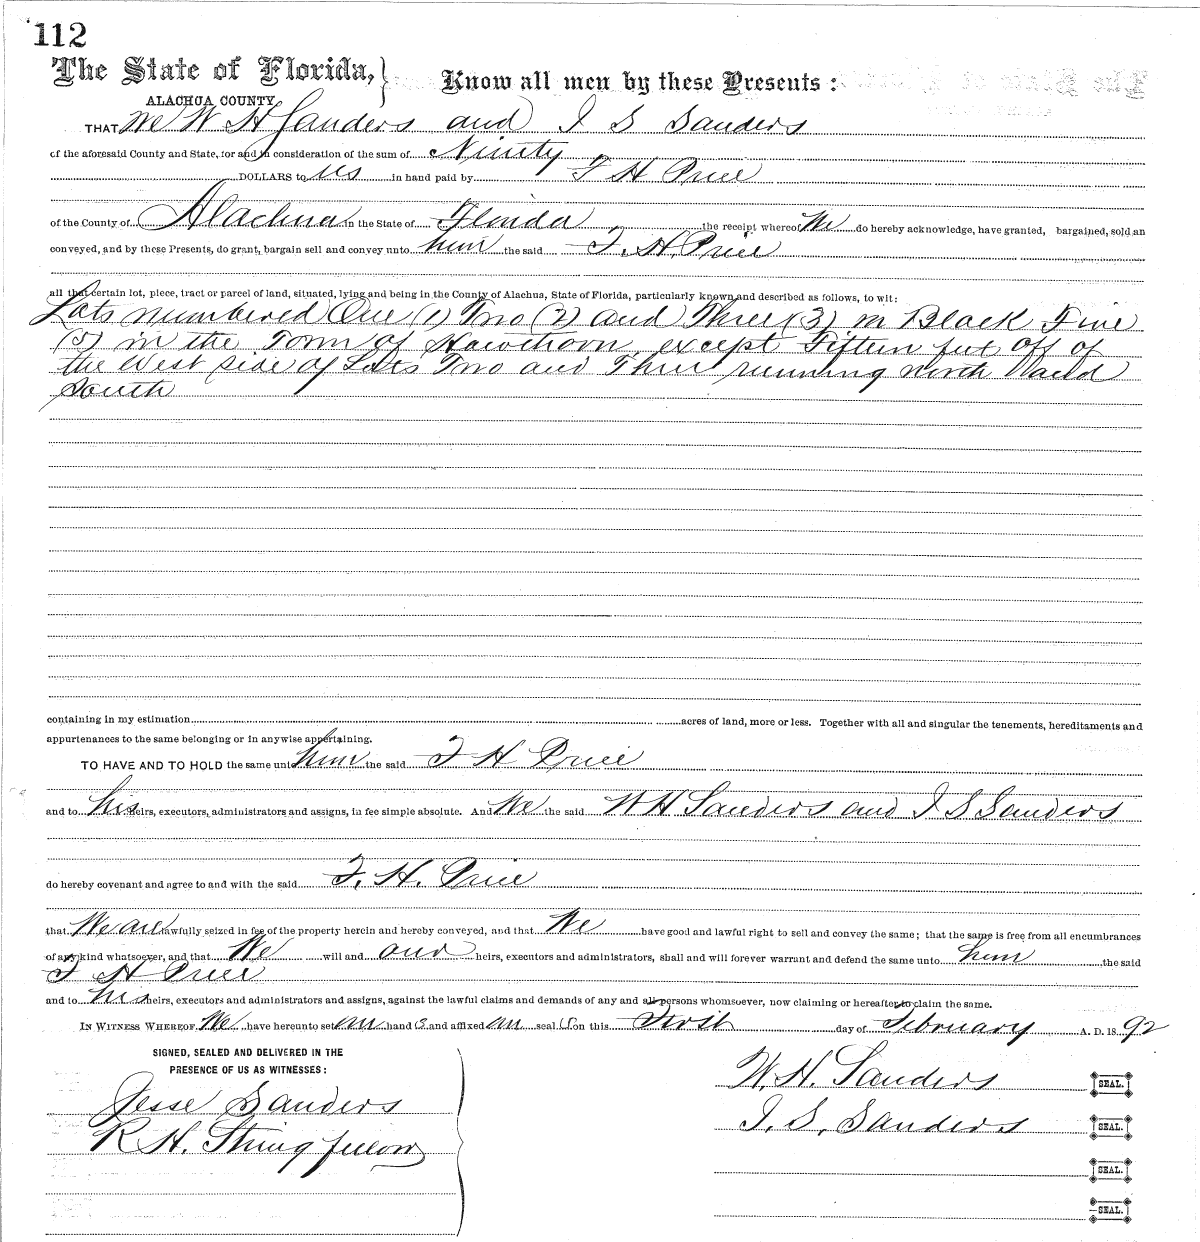 112
The State of Florida,
ALACHUA COUNTY
Know all men by these Presents:
THAT We W H Sanders and I S Sanders
of the aforesaid County and State, for and in consideration of the sum of Ninety
DOLLARS to us in hand paid by T H Price
of the County of Alachua in the State of Florida the receipt whereof We do hereby acknowledge, have granted, bargained, sold an
conveyed, and by these Presents, do grant, bargain sell and convey unto him the said T. H. Price
all that certain lot, piece, tract or parcel of land, situated, lying and being in the County of Alachua, State of Florida, particularly known and described as follows, to wit:
Lots numbered One (1) Two (2) and Three (3) in Block Five
(5) in the Town of Hawthorn except Fifteen feet off of
the West side of Lots Two and Three running north and
South
containing in my estimation acres of land, more or less. Together with all and singular the tenements, hereditaments and
appurtenances to the same belonging or in anywise appertaining.
TO HAVE AND TO HOLD the same unto him the said T H Price
and to his heirs, executors, administrators and assigns, in fee simple absolute. And We the said W H Sanders and I S Sanders
do hereby covenant and agree to and with the said T. H. Price
that We are lawfully seized in fee of the property herein and hereby conveyed, and that We have good and lawful right to sell and convey the same; that the same is free from all encumbrances
of any kind whatsoever, and that We will and our heirs, executors and administrators, shall and will forever warrant and defend the same unto him the said
T H Price
and to his heirs, executors and administrators and assigns, against the lawful claims and demands of any and all persons whomsoever, now claiming or hereafter to claim the same.
IN WITNESS WHEREOF, We have hereunto set our hand (s and affixed our seal (s on this First day of February A. D. 18 92
SIGNED, SEALED AND DELIVERED IN THE
PRESENCE OF US AS WITNESSES:
Jesse Sanders
R H. Stringfellow
W. H. Sanders SEAL.
I. S. Sanders SEAL.
SEAL.
SEAL.